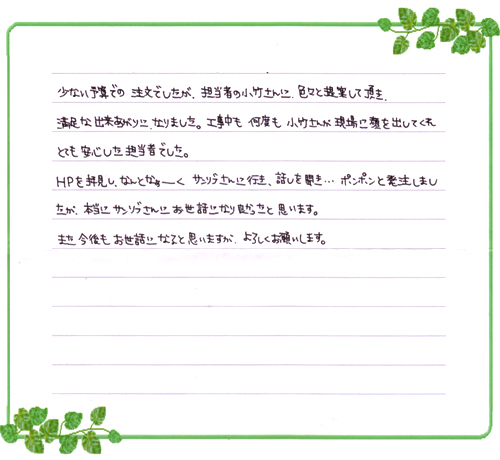 少ない予算での注文でしたが、担当者の小竹さんに、色々と提案して頂き、
満足な出来あがりになりました。工事中も何度も小竹さんが現場に顔を出してくれ
とても安心した担当者でした。
HPを拝見し、なんとなぁーくサンリブさんに行き、話しを聞き…ポンポンと発注しまし
たが、本当にサンリブさんにお世話になり良かったと思います。
また今後もお世話になると思いますが、よろしくお願いします。